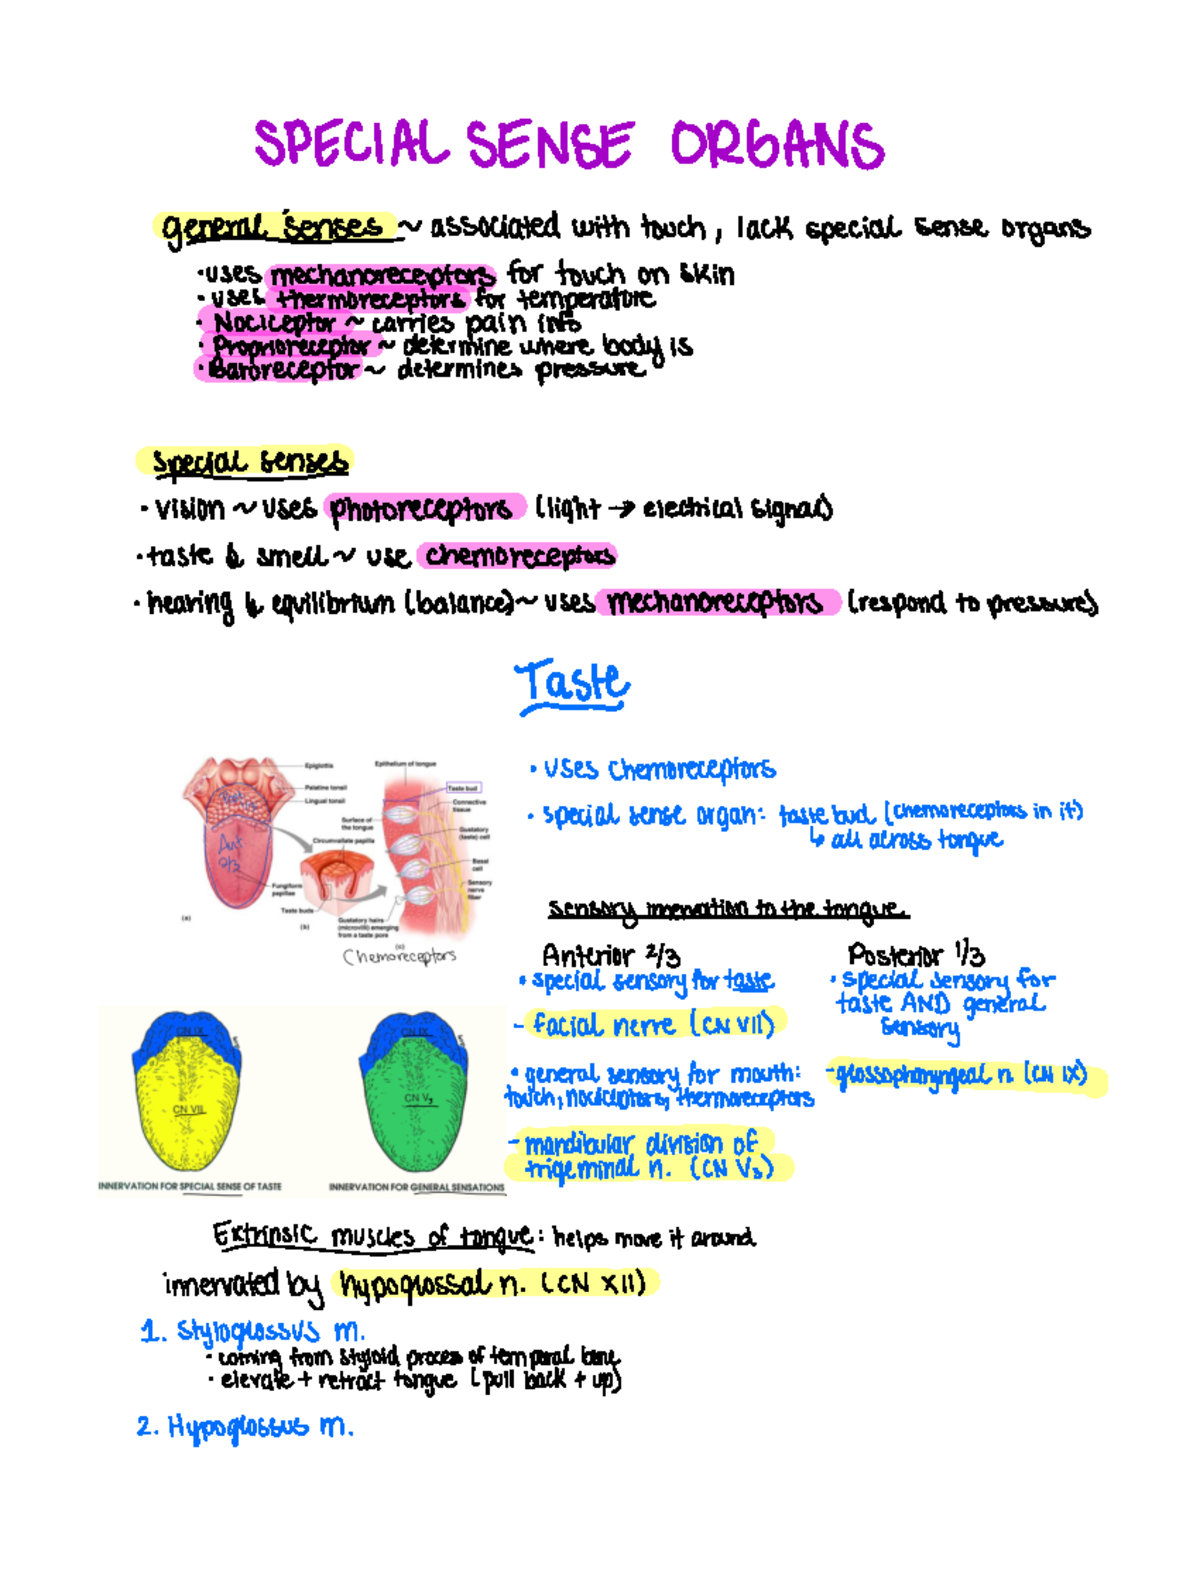 SPECIAL SENSE ORGANS
general senses ~ associated with touch, lack special sense organs
·uses mechanoreceptors for touch on skin
·uses thermoreceptors for temperature
·Nociceptor ~ carries pain info
·Proprioreceptor ~ determine where body is
·Baroreceptor ~ determines pressure
special senses
·vision ~ uses photoreceptors (light → electrical signal)
·taste & smell ~ use chemoreceptors
·hearing & equilibrium (balance) ~ uses mechanoreceptors (respond to pressure)
Taste
·uses chemoreceptors
·special sense organ: taste bud (chemoreceptors in it)
↳ all across tongue
Epiglottis
Palatine tonsil
Lingual tonsil
Post 1/3
Ant 2/3
Fungiform papillae
(a)
Surface of the tongue
Circumvallate papilla
Taste buds
(b)
Epithelium of tongue
Taste bud
Connective tissue
Gustatory (taste) cell
Basal cell
Sensory nerve fiber
Gustatory hairs (microvilli) emerging from a taste pore
(c)
Chemoreceptors
sensory innervation to the tongue
Anterior 2/3
·special sensory for taste
- facial nerve (CN VII)
·general sensory for mouth:
touch, nociceptors, thermoreceptors
- mandibular division of
trigeminal n. (CN V₃)
Posterior 1/3
·special sensory for
taste AND general
sensory
-glossopharyngeal n. (CN IX)
CN IX
CN VII
INNERVATION FOR SPECIAL SENSE OF TASTE
CN IX
CN V₃
INNERVATION FOR GENERAL SENSATIONS
Extrinsic muscles of tongue: helps move it around
innervated by hypoglossal n. (CN XII)
1. Styloglossus m.
·coming from styloid process of temporal bone
·elevate + retract tongue (pull back + up)
2. Hypoglossus m.